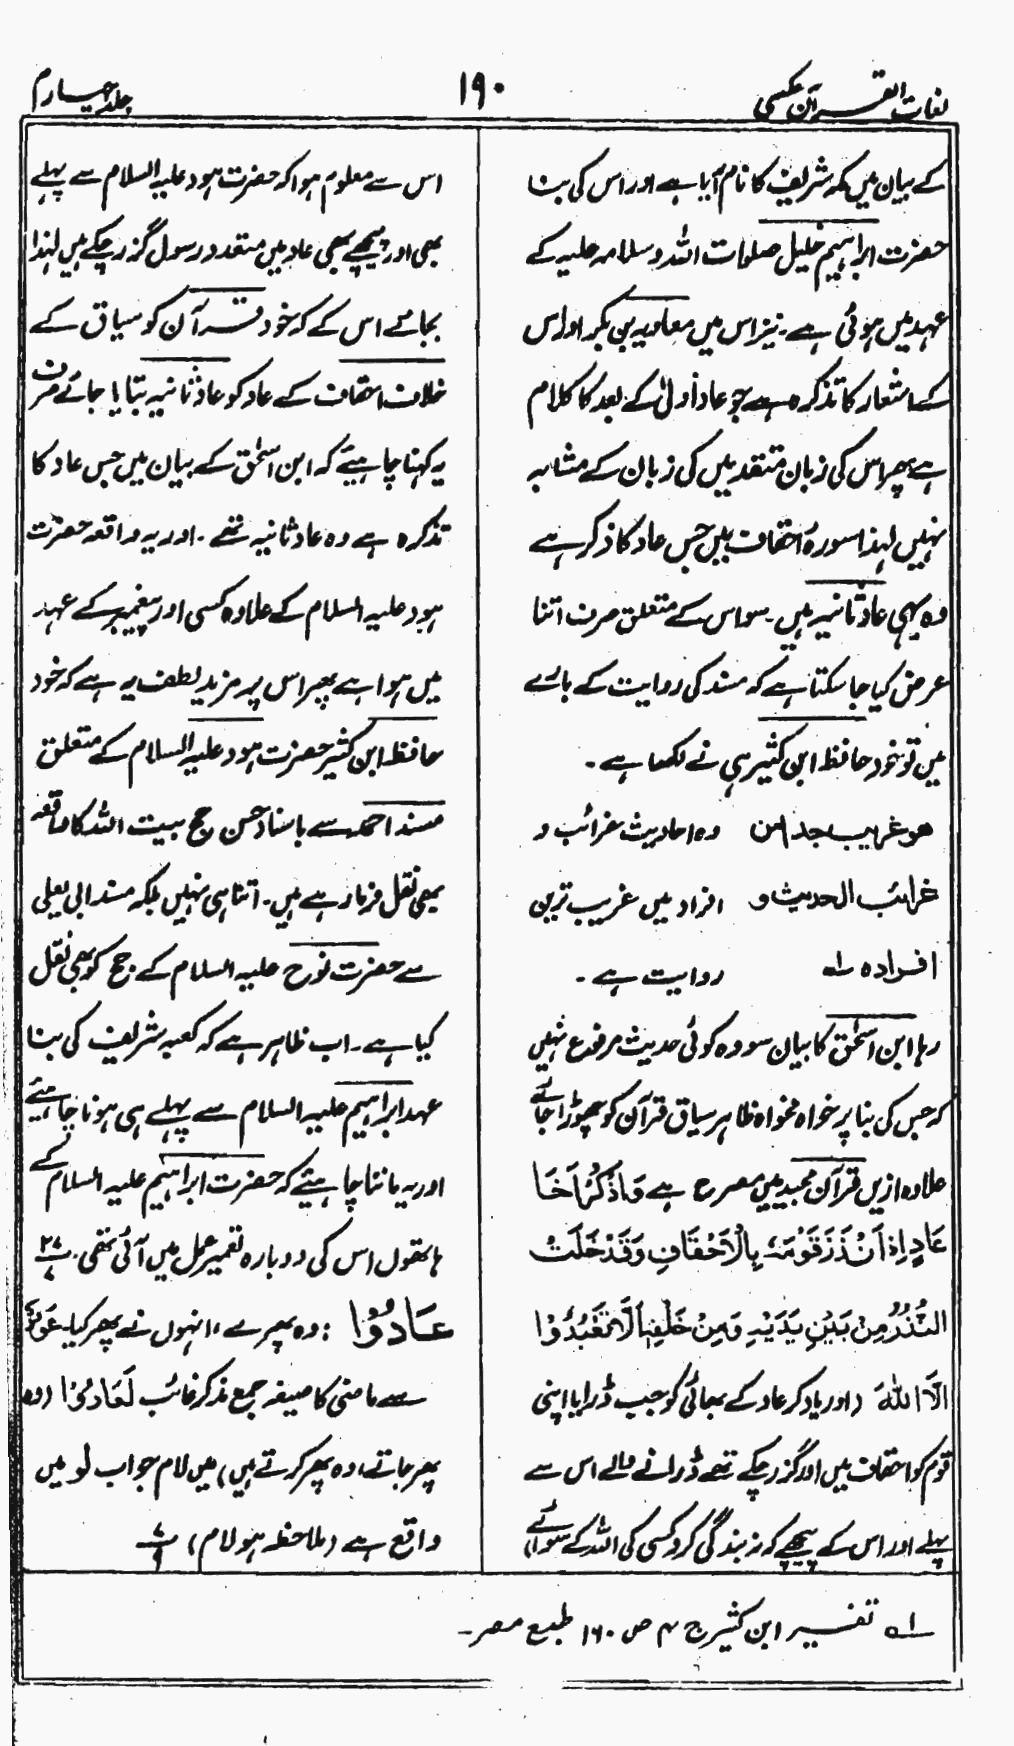 لغات القرآن عکسی
۱۹۰
جلد چہارم
کے بیان میں مکہ شریف کا نام آیا ہے اور اس کی بنا
حضرت ابراہیم خلیل صلوات اللہ وسلامہ علیہ کے
عہد میں ہوئی ہے۔ نیز اس میں معاویہ بن بکر اور اس
کے اشعار کا تذکرہ ہے جو عاد اُولیٰ کے بعد کا کلام
ہے پھر اس کی زبان متقدمین کی زبان کے مشابہ
نہیں لہذا سورۂ احقاف میں جس عاد کا ذکر ہے
وہ یہی عاد ثانیہ ہیں۔ سو اس کے متعلق صرف اتنا
عرض کیا جا سکتا ہے کہ مسند کی روایت کے بارے
میں تو خود حافظ ابن کثیر ہی نے لکھا ہے۔
هو غريب جدا من وہ احادیث غرائب و
غرائب الحديث و افراد میں غریب ترین
افراده لہ روایت ہے۔
رہا ابن اسحٰق کا بیان سو وہ کوئی حدیث مرفوع نہیں
کہ جس کی بنا پر خواہ مخواہ ظاہر سیاق قرآن کو چھوڑا جائے
علاوہ ازیں قرآن مجید میں مصرح ہے وَاذْكُرْ اَخَا
عَادٍ اِذْ اَنْذَرَ قَوْمَهٗ بِالْاَحْقَافِ وَقَدْ خَلَتْ
النُّذُرُ مِنْ بَيْنِ يَدَيْهِ وَمِنْ خَلْفِهٖ اَلَّا تَعْبُدُوْا
اِلَّا اللّٰهَ (اور یاد کر عاد کے بھائی کو جب ڈرایا اپنی
قوم کو احقاف میں اور گزر چکے تھے ڈرانے والے اس سے
پہلے اور اس کے پیچھے کہ نہ بندگی کرو کسی کی اللہ کے سوائے)
اس سے معلوم ہوا کہ حضرت ہود علیہ السلام سے پہلے
بھی اور پیچھے بھی عاد میں متعدد رسول گزر چکے ہیں لہٰذا
بجائے اس کے کہ خود قرآن کو سیاق کے
خلاف احقاف کے عاد کو عاد ثانیہ بتایا جائے صرف
یہ کہنا چاہیئے کہ ابن اسحٰق کے بیان میں جس عاد کا
تذکرہ ہے وہ عاد ثانیہ تھے۔ اور یہ واقعہ حضرت
ہود علیہ السلام کے علاوہ کسی اور پیغمبر کے عہد
میں ہوا ہے پھر اس پر مزید لطف یہ ہے کہ خود
حافظ ابن کثیر حضرت ہود علیہ السلام کے متعلق
مسند احمد سے باسناد حسن حج بیت اللہ کا واقعہ
بھی نقل فرما رہے ہیں۔ اتنا ہی نہیں بلکہ مسند ابی یعلی
سے حضرت نوح علیہ السلام کے حج کو بھی نقل
کیا ہے۔ اب ظاہر ہے کہ کعبہ شریف کی بنا
عہد ابراہیم علیہ السلام سے پہلے ہی ہونا چاہیئے
اور یہ ماننا چاہیئے کہ حضرت ابراہیم علیہ السلام کے
ہاتھوں اس کی دوبارہ تعمیر عمل میں آئی تھی۔
عَادُوْا : وہ پھرے، انہوں نے پھر کیا۔ عَوْدٌ
سے ماضی کا صیغہ جمع مذکر غائب لَعَادُوْا (وہ
پھر جاتے، وہ پھر کرتے ہیں) میں لام جواب لو میں
واقع ہے (ملاحظہ ہو لام) ۷/۹
لہ تفسیر ابن کثیر ج ۴ ص ۱۶۰ طبع مصر۔